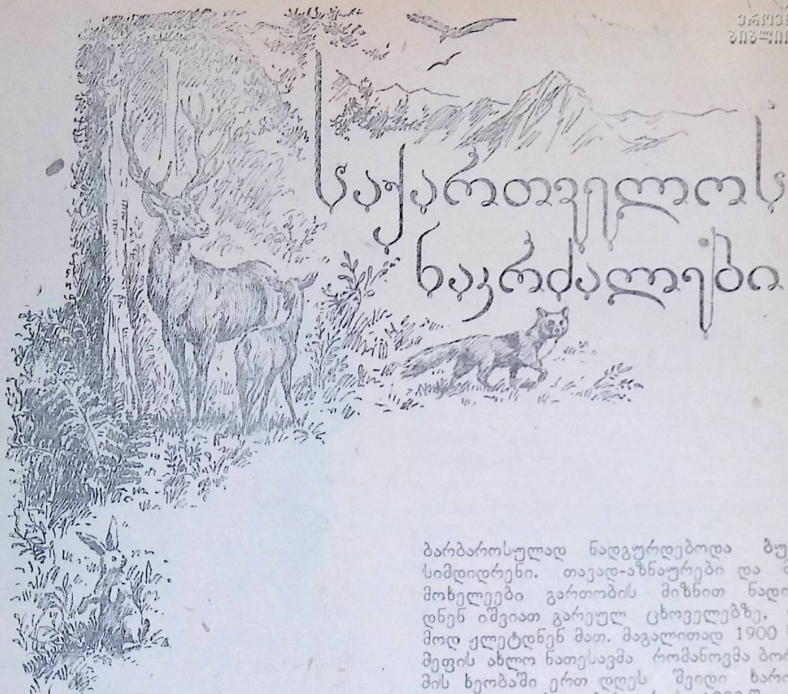 საქართველოს
ნაკრძალები
ბარბაროსულად ნადგურდებოდა
სიმდიდრენი. თავად-აზნაურები და
მოხელეები გართობის მიზნით
დნენ იშვიათ გარეულ ცხოველებზე,
მოდ ჟლეტდნენ მათ. მაგალითად 1900
მეფის ახლო ნათესავმა რომანოვმა
მის ხეობაში ერთ დღეს შვიდი